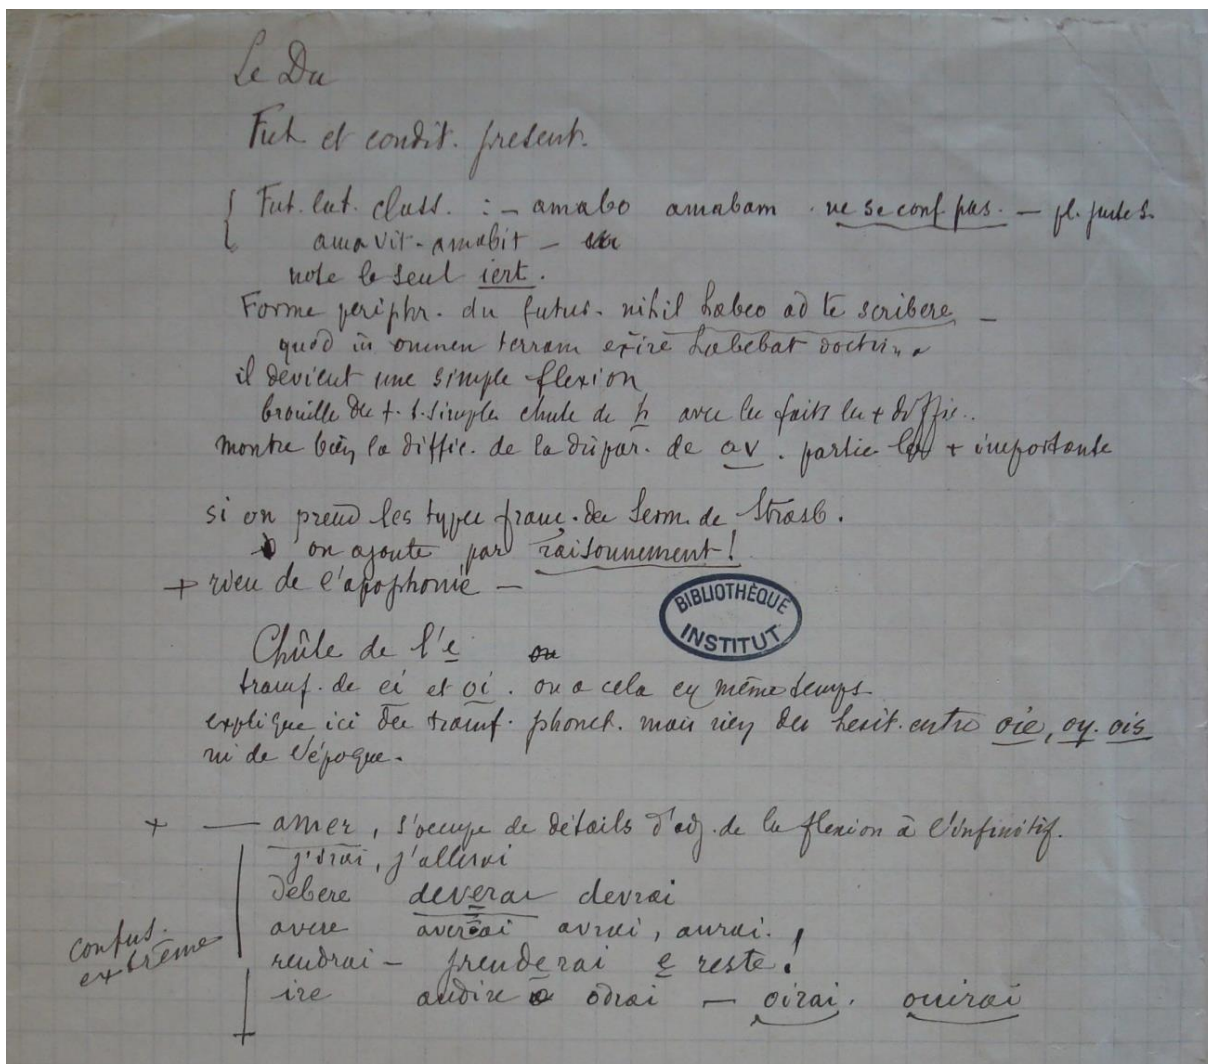 Le Du
Fut. et condit. present.
Fut. lat. class. : - amabo amabam . ne se conf. pas. - pl.
amavit - amabit -
note le seul iert.
Forme periphr. du futur. nihil habeo ad te scribere -
quod in omnen terram exire habebat doctrina
il devient une simple flexion
brouille des t. t. simples chute de h avec les faits les + diffic.
montre bien la diffic. de la dispar. de av. partie la + importante
si on prend les types franç. des Serm. de Strasb.
on ajoute par raisonnement !
+ rien de l'apophonie -
BIBLIOTHÈQUE
INSTITUT
Chûte de l'e ou
transf. de ei et oi. on a cela en même temps
explique ici des transf. phonet. mais rien des hesit. entre oie, oy. ois
ni de l'époque.
+ — amer, s'occupe de détails d'adj. de la flexion à l'infinitif.
j'irai, j'allerai
debere deverai devrai
avere averai avrai, aurai.
confus.
extrême
rendrai - prenderai e reste !
ire audire odrai - oirai. ouirai